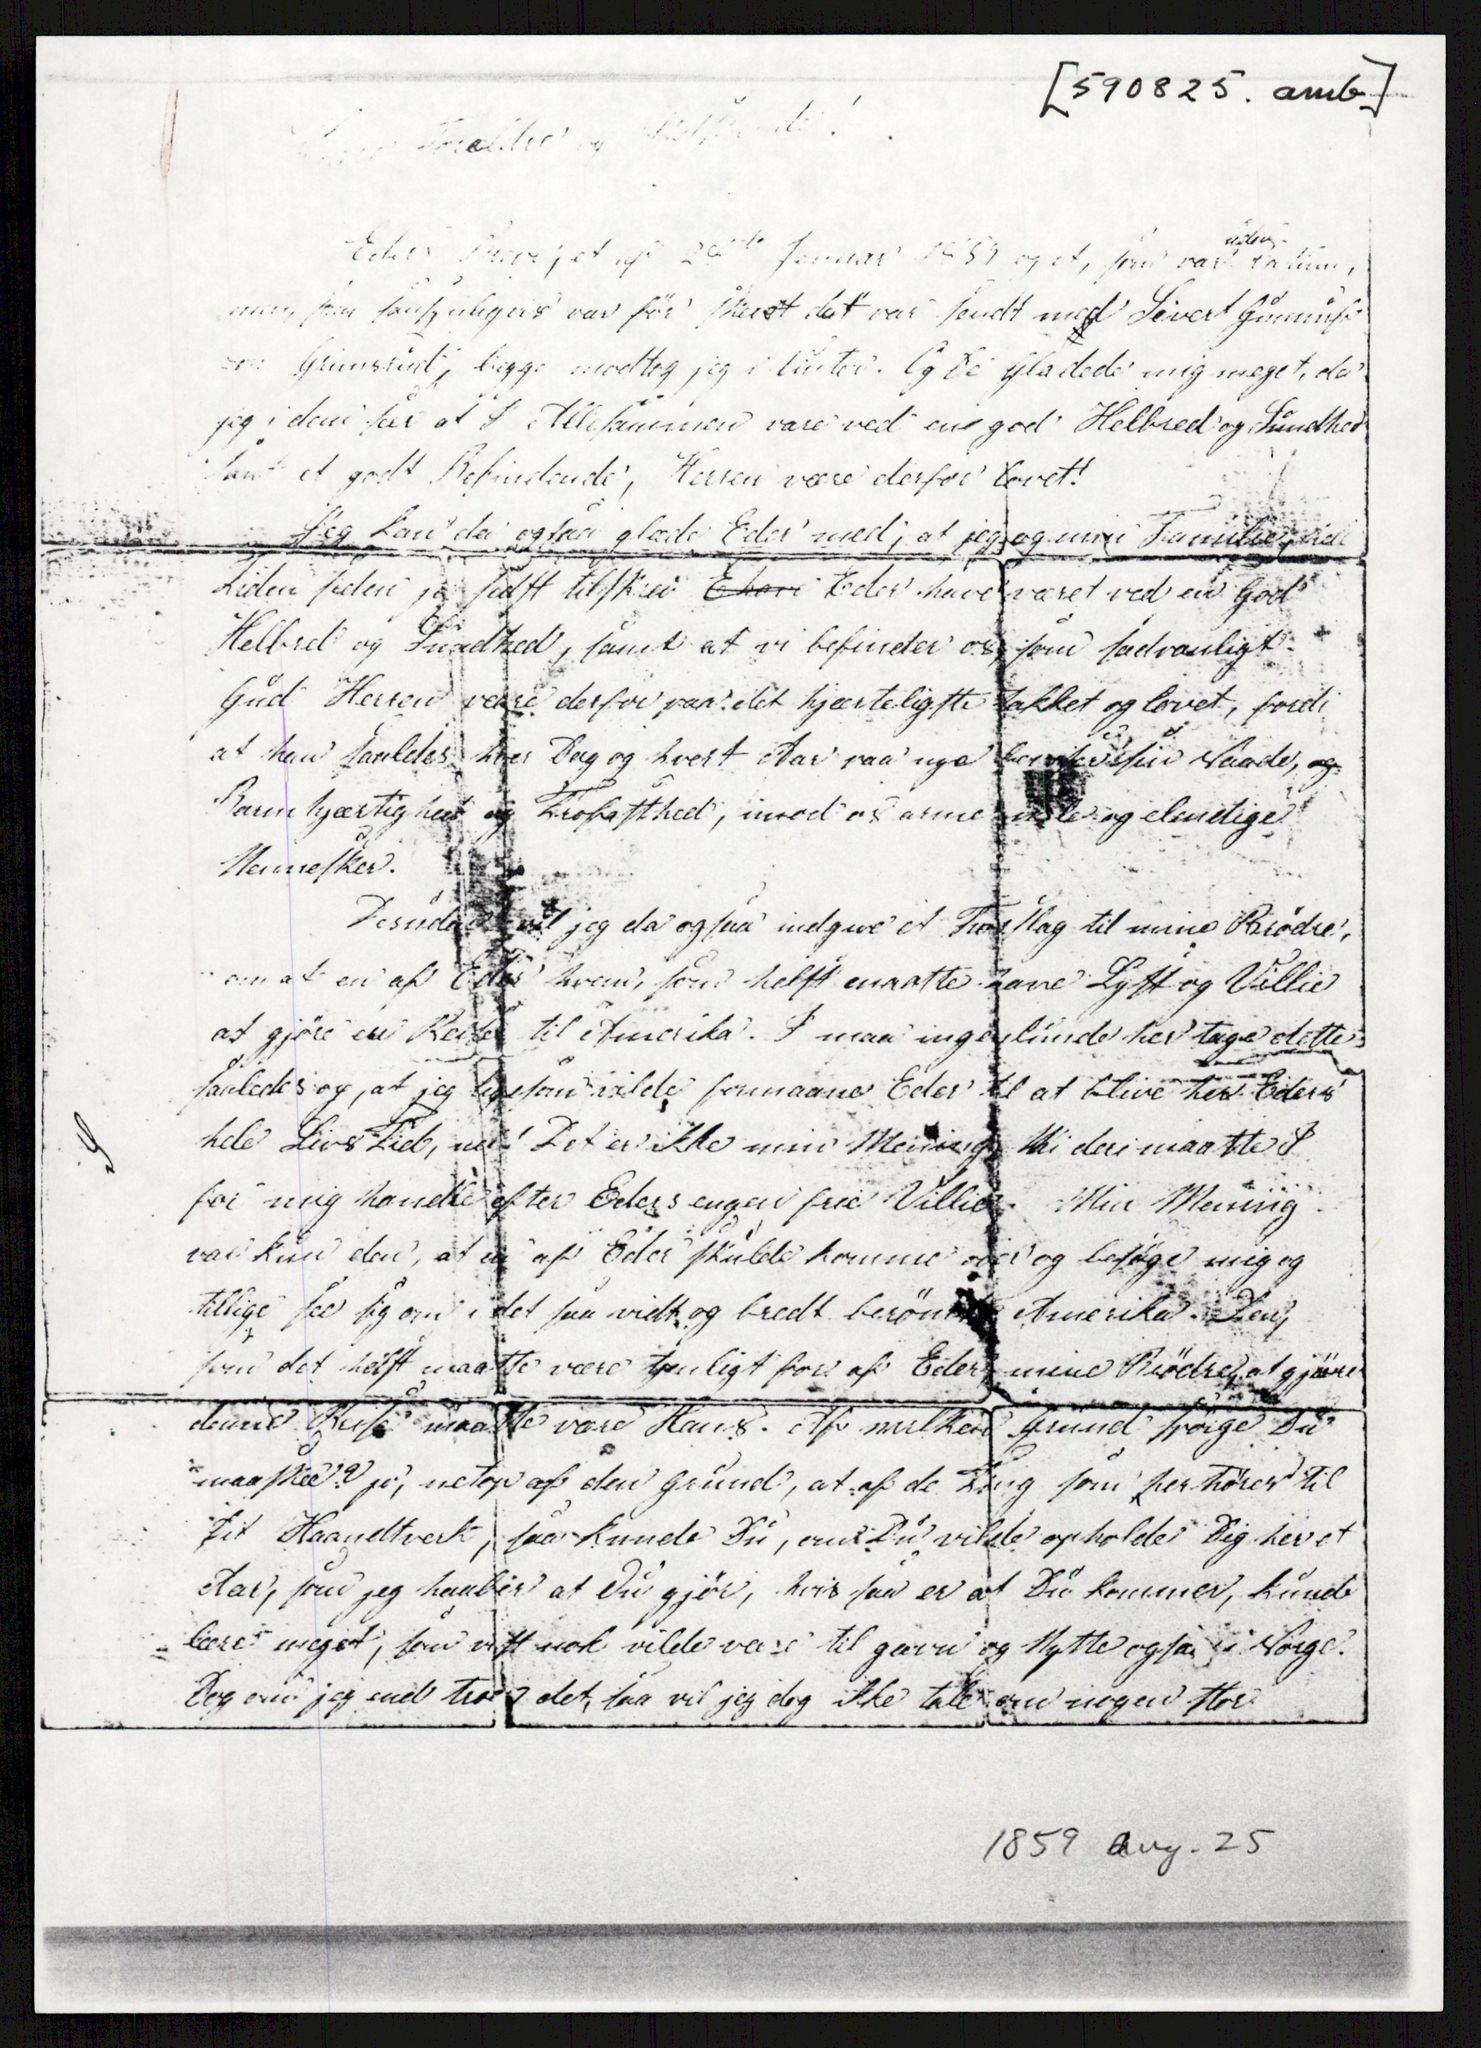 [590825. amb]
Forældre og
Eders Breve, et af 29de Januar 1859 og et, som var uden Datum,
men som var før skrevet da det var sendt med Sivert Gunnulf
sen Grimsrud, begge modtog jeg i Vinter. Og De glædede mig meget, da
jeg i dem ser at I Allesammen vare ved en god Helbred og Sundhed
samt et godt Befindende, Herren være derfor lovet!
Jeg kan da ogsaa glæde Eder med, at jeg og min Familie,
Tiden siden jeg sidst tilskrev Eder have været ved en God
Helbred og Sundhed, samt at vi befinder os, som sædvanligt.
Gud Herren være derfor paa det hjærteligste takket og lovet, fordi
at han saaledes hver Dag og hvert Aar paa nye beviser sin Naade, og
Barmhjærtighed og Trofasthed, imod os arme og elendige
Mennesker.
Desuden vil jeg da ogsaa indgive et Forslag til mine Brödre,
om at en af Eder hvem, som helst maatte have Lyst og Villie
at gjöre en Reise til Amerika. I maa ingenlunde her tage dette
saaledes op, at jeg ligesom vilde formaane Eder til at blive her Eders
hele Livs Tid, nei! Det er ikke min Mening, thi deri maatte I
for mig handle efter Eders engen frie Villie. Min Mening
var kun den, at en af Eder skulde komme over og besøge mig og
tillige see sig om i det saa vidt og bredt berömte Amerika. Den,
som det helst maatte være tjenligt for af Eder, mine Brödre, at gjöre
denne Reise maatte være Hans. Af hvilken Grund spörge Du
maaskee? jo, netop af den Grund, at af de Ting som her hörer til
Dit Haandtverk, saa kunde Du, om Du vilde opholde Dig her et
Aar, som jeg haaber at Du gjör, hvis saa er at Du kommer, kunde
lære meget, som vist nok vilde være til gavn og Nytte ogsaa i Norge.
Dog om jeg end troer det, saa vil jeg dog ikke tale om nogen stor
1859 Aug. 25